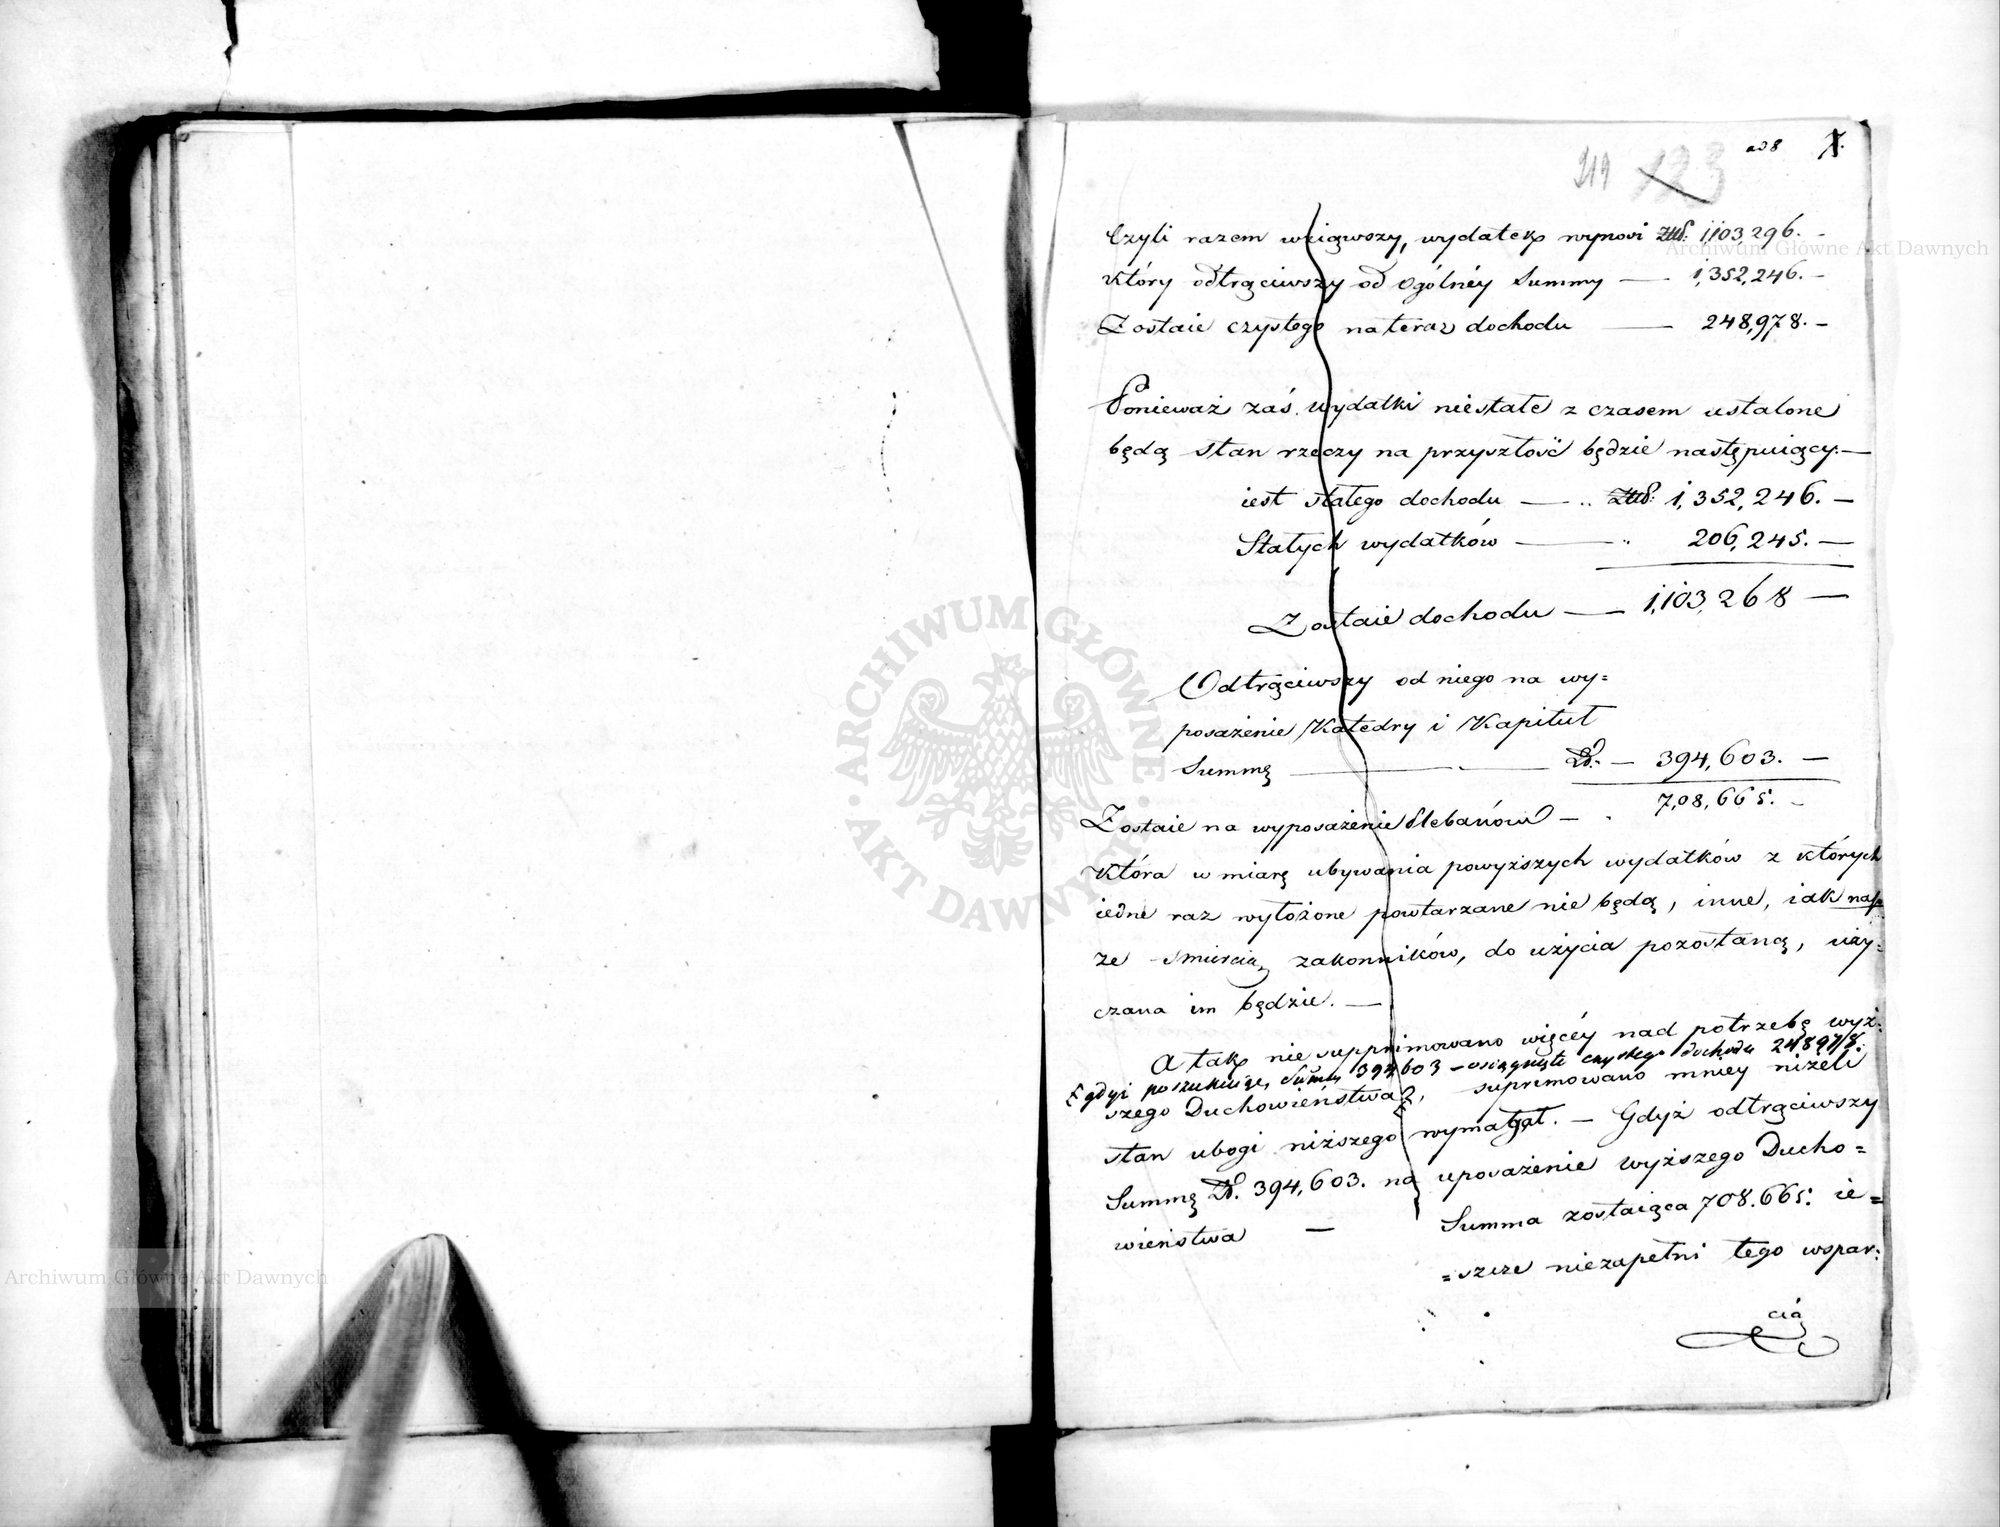 ad 8
1.
219 123
Czyli razem wziąwszy, wydatek wynosi Złl: 1,103,296. -
Który odtrąciwszy od Ogólnéy Summy — 1,352,246. -
Zostaie czystego na teraz dochodu — 248,978. -
Ponieważ zaś wydatki niestałe z czasem ustalone
będą stan rzeczy na przyszłość będzie następuiący. —
iest stałego dochodu — .. 1,352,246. —
Stałych wydatków — " 206,245. —
Zostaie dochodu — 1,103,268 —
Odtrąciwszy od niego na wy=
posażenie Katedry i Kapituł
Summę — Zł. — 394,603. —
708,665. -
Zostaie na wyposażenie Plebanów — .
Która w miarę ubywania powyższych wydatków z których
iedne raz wyłożone powtarzane nie będą, inne, iak nap
ze smiercią zakonników, do użycia pozostaną, uży=
czana im będzie. —
A tak nie supprimowano więcéy nad potrzebę wyż=
gdyż poszukuiąc Summy 394603 - osiągnięto czystego dochodu 248978.
szego Duchowieństwa, suprimowano mniey niżeli
stan ubogi niższego wymagał. — Gdyż odtrąciwszy
Summę Zł. 394,603. na uposażenie wyższego Ducho=
wieństwa — Summa zostaiąca 708.665. ie=
=szcze niezapełni tego wspar=
cia
ARCHIWUM GŁÓWNE AKT DAWNYCH
Archiwum Główne Akt Dawnych
Archiwum Główne Akt Dawnych